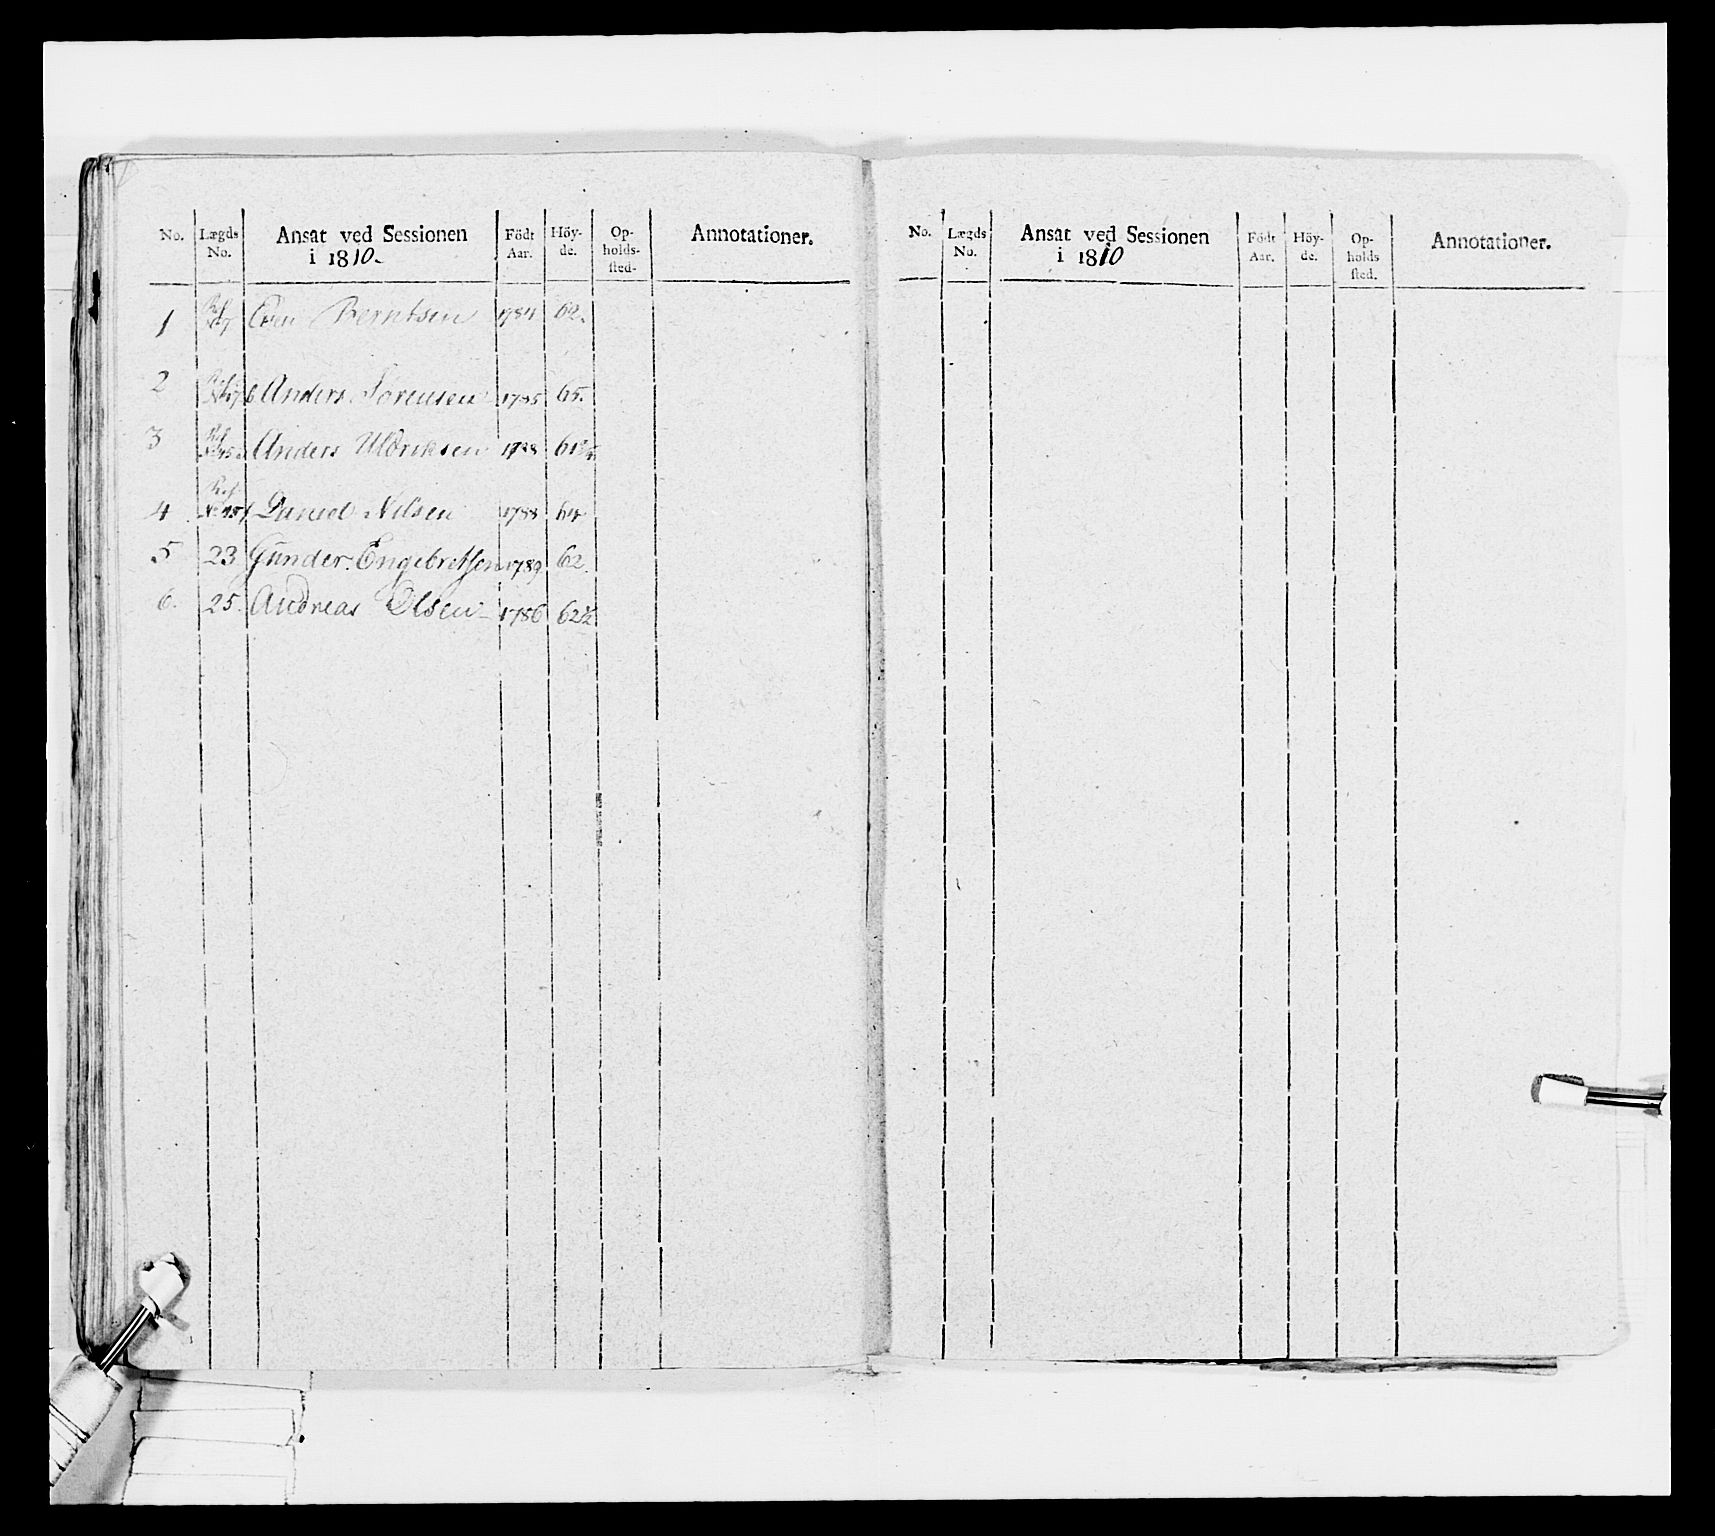 No. Lægds No. Ansat ved Sessionen i 1810. Födt Aar. Höy-de. Op-holds-sted. Annotationer.
1 Ref No 7 Even Berntsen 1784 62.
2 Anders Sörensen 1785 65.
3 Anders Uldriksen 1788
4 Ref Daniel Nilsen 1788 64
5 23 Gunder Engebretsen 1789 62.
6. 25. Andreas Olsen 1786 62½
No. Lægds No. Ansat ved Sessionen i 1810 Födt Aar. Höy-de. Op-holds sted. Annotationer.